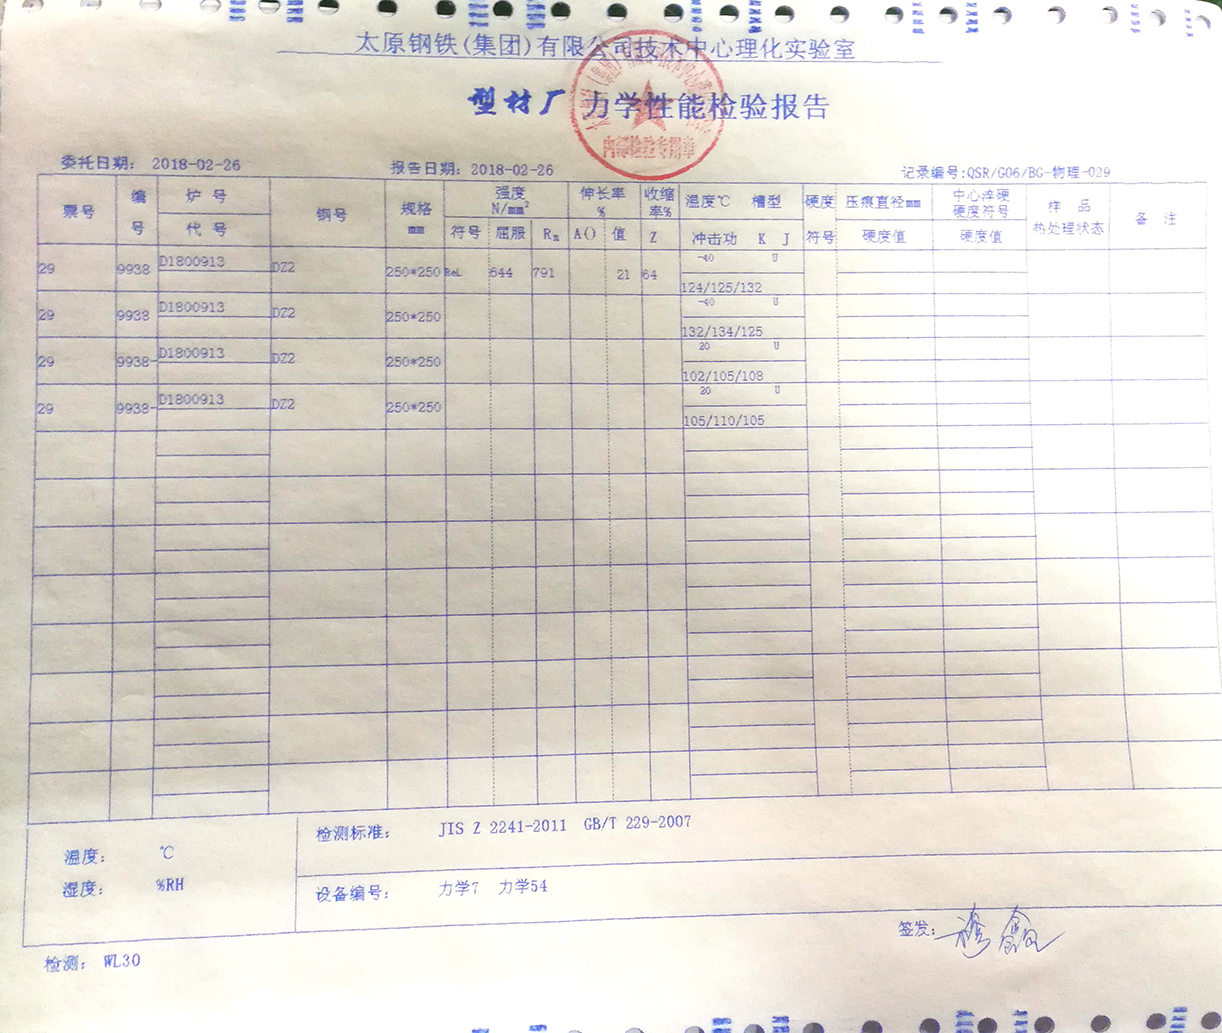 太原钢铁(集团)有限公司技术中心理化实验室
型材厂 力学性能检验报告
内部检验专用章
委托日期: 2018-02-26 报告日期: 2018-02-26 记录编号:QSR/G06/BG-物理-029
票号 编号 炉号 代号 钢号 规格 mm 强度 N/mm² 符号 屈服 Rm 伸长率 % A() 值 收缩率% Z 温度℃ 槽型 冲击功 K J 硬度符号 压痕直径mm 硬度值 中心淬硬硬度符号 硬度值 样品热处理状态 备注
29 9938 D1800913 DZ2 250*250 ReL 644 791 21 64 -40 U
124/125/132
29 9938 D1800913 DZ2 250*250 -40 U
132/134/125
29 9938- D1800913 DZ2 250*250 20 U
102/105/108
29 9938- D1800913 DZ2 250*250 20 U
105/110/105
温度: ℃
湿度: %RH
检测标准: JIS Z 2241-2011 GB/T 229-2007
设备编号: 力学7 力学54
签发:
检测: WL30